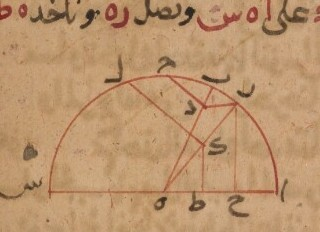 على اه س ونصل ره وناخذ ه ط
ل ح ب ر
د
ك
س ه ط ح ا